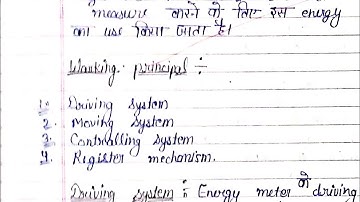 measure करने के लिए इस energy
का use किया जाता है।
Working principal :-
1. Driving system
2. Moving system
3. Controlling system
4. Register mechanism.
Driving system :- Energy meter के driving